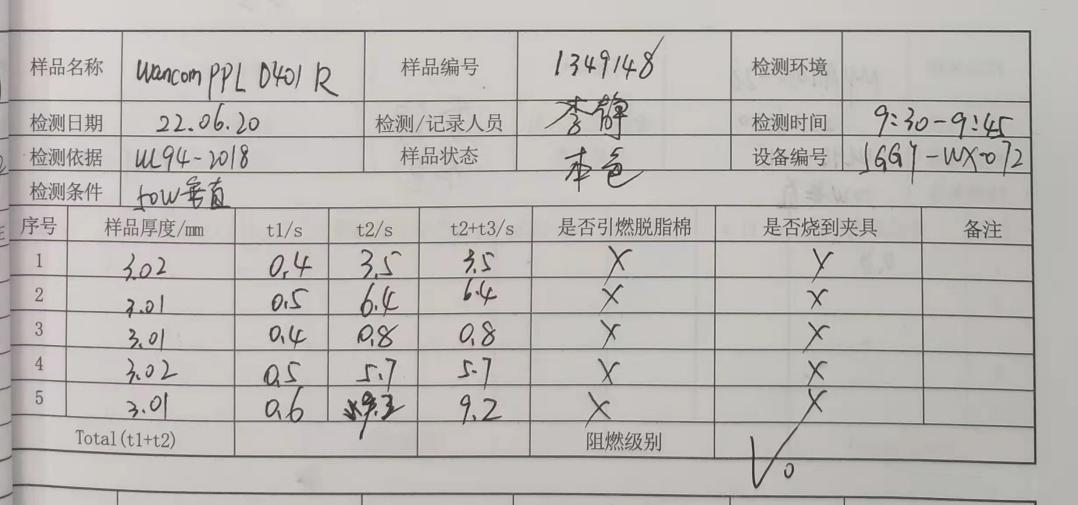 样品名称 Wancom PPL 0401 R 样品编号 1349148 检测环境
检测日期 22.06.20 检测/记录人员 李静 检测时间 9:30-9:45
检测依据 UL94-2018 样品状态 本色 设备编号 1GGY-WX-072
检测条件 50W垂直
序号 样品厚度/mm t1/s t2/s t2+t3/s 是否引燃脱脂棉 是否烧到夹具 备注
1 3.02 0.4 3.5 3.5 X X
2 3.01 0.5 6.4 6.4 X X
3 3.01 0.4 0.8 0.8 X X
4 3.02 0.5 5.7 5.7 X X
5 3.01 0.6 9.2 X X
Total(t1+t2) 阻燃级别 V0